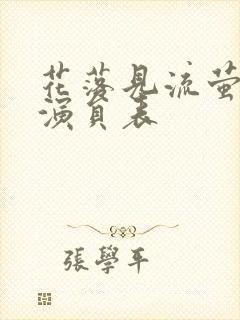 花落見流萤
演員表
張學平